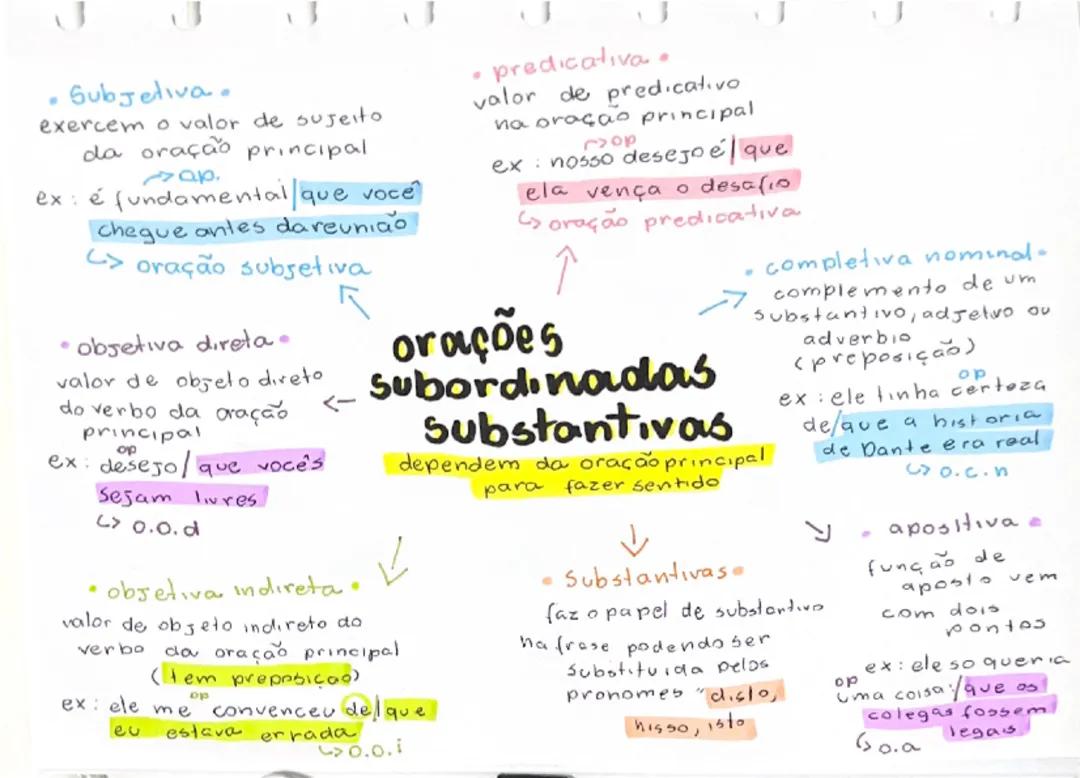 • Subjetiva •
exercem o valor de sujeito
da oração principal
↝ op.
ex: é fundamental/que você
chegue antes da reunião
↳ oração subjetiva
• predicativa •
valor de predicativo
na oração principal
↝ op
ex: nosso desejo é/que
ela vença o desafio
↳ oração predicativa
• completiva nominal •
complemento de um
substantivo, adjetvo ou
adverbio
(preposição)
op
ex: ele tinha certeza
de/que a historia
de Dante era real
↳ o.c.n
• objetiva direta •
valor de objeto direto
do verbo da oração
principal
op
ex: desejo/que vocês
sejam livres
↳ o.o.d
orações
subordinadas
substantivas
dependem da oração principal
para fazer sentido
• objetiva indireta •
valor de objeto indireto do
verbo da oração principal
(tem preposição)
op
ex: ele me convenceu de/que
eu estava errada
↳ o.o.i
• Substantivas •
faz o papel de substantivo
na frase podendo ser
substituida pelos
pronomes "disto,
nisso, isto
• apositiva •
função de
aposto vem
com dois
pontos
ex: ele so queria
op
uma coisa:/que os
colegas fossem
legais
↳ o.a